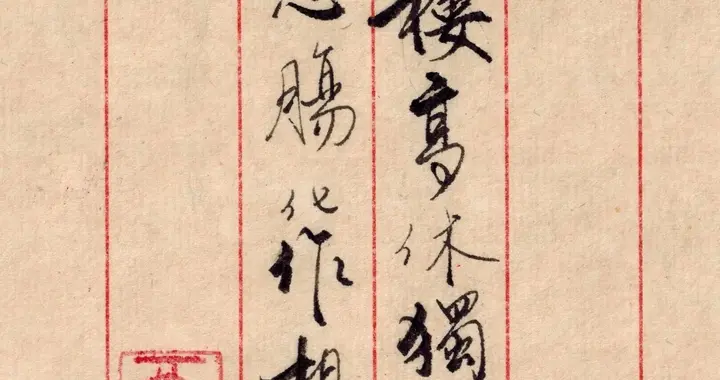 樓高休獨
腸化作相